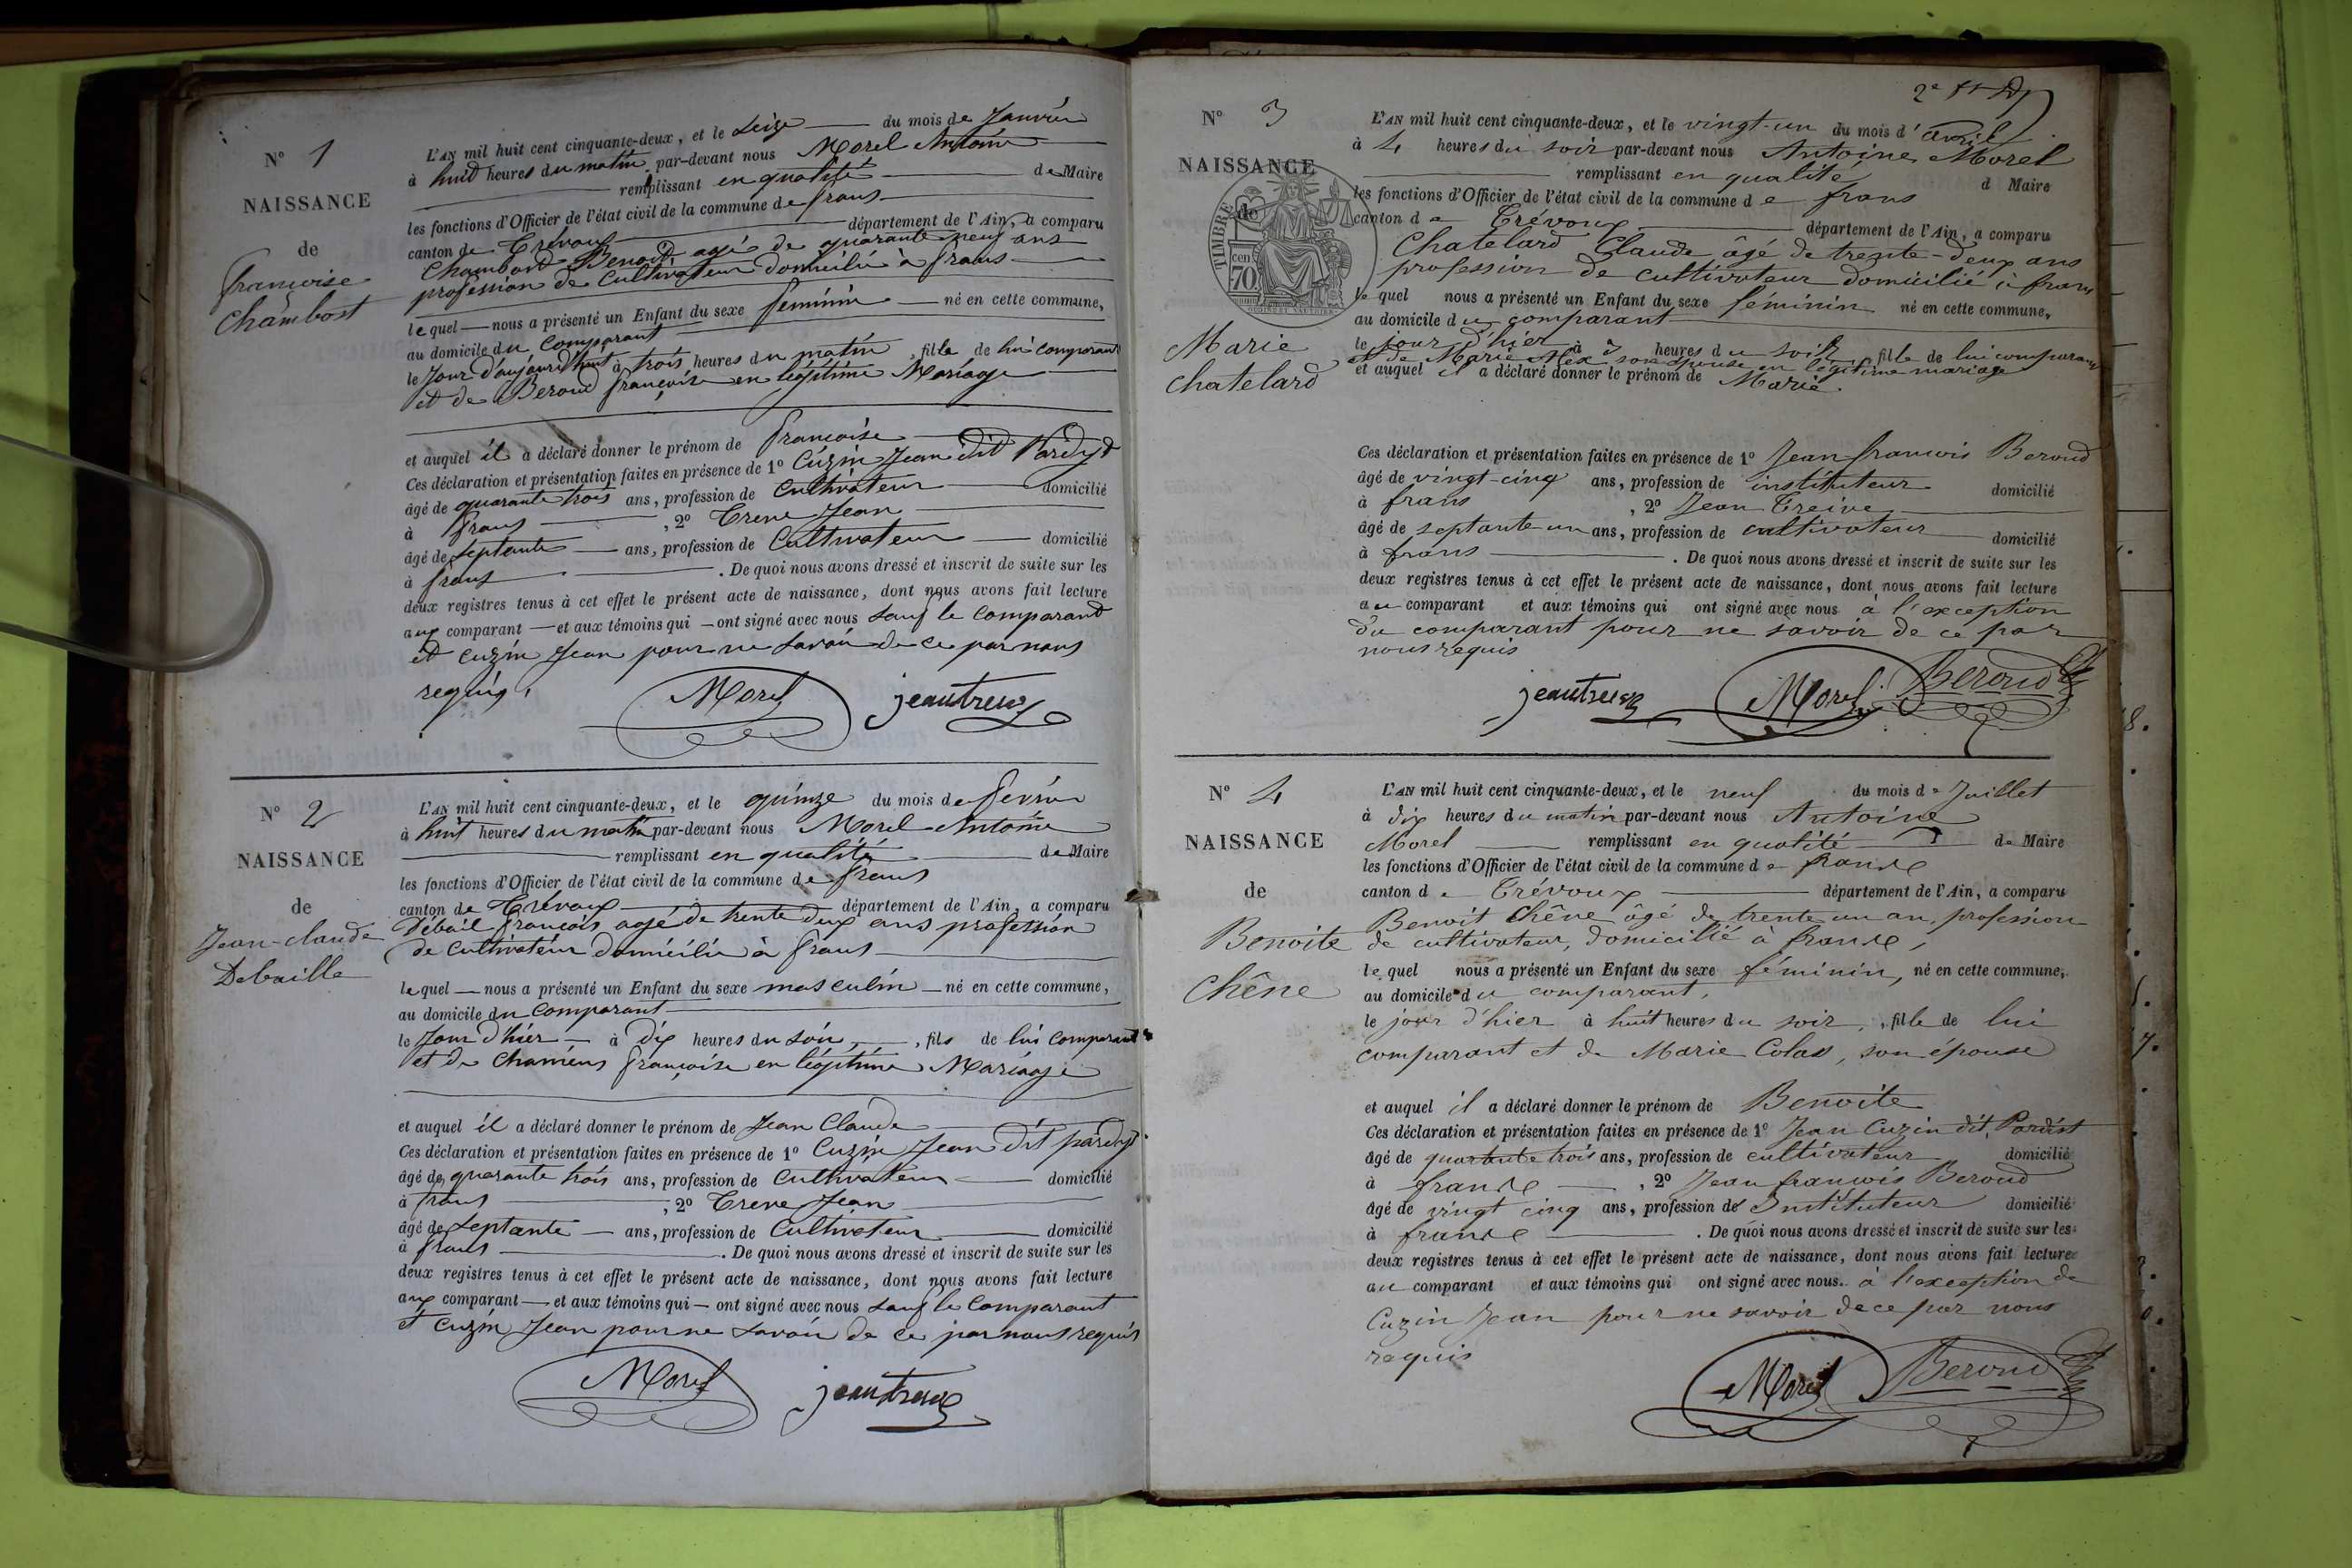 N° 1
NAISSANCE
de
françoise
Chambost
L'AN mil huit cent cinquante-deux, et le Seize du mois de Janvier
à huit heures du matin par-devant nous Morel Antoine
remplissant en qualité de Maire
les fonctions d'Officier de l'état civil de la commune de frans
canton de Trévoux département de l'Ain, a comparu
Chambost Benoit, agé de quarante neuf ans
profession de Cultivateur domicilié à frans
lequel nous a présenté un Enfant du sexe feminin né en cette commune,
au domicile du Comparant
le Jour d'aujourd'huit à trois heures du matin, fille de lui comparant
et de Beroud françoise en légitime Mariage
et auquel il a déclaré donner le prénom de françoise
Ces déclaration et présentation faites en présence de 1° Cuzin Jean dit
âgé de quarante trois ans, profession de Cultivateur domicilié
à frans, 2° Treve Jean
âgé de septante ans, profession de Cultivateur domicilié
à frans. De quoi nous avons dressé et inscrit de suite sur les
deux registres tenus à cet effet le présent acte de naissance, dont nous avons fait lecture
aux comparant et aux témoins qui ont signé avec nous sauf le comparant
et cuzin Jean pour ne savoir de ce par nous
requis,
Morel jeantreve
N° 2
NAISSANCE
de
Jean-claude
Debaille
L'AN mil huit cent cinquante-deux, et le quinze du mois de fevrier
à huit heures du matin par-devant nous Morel Antoine
remplissant en qualité de Maire
les fonctions d'Officier de l'état civil de la commune de frans
canton de Trévoux département de l'Ain, a comparu
Débail françois agé de trente deux ans profession
de cultivateur domicilié à frans
lequel nous a présenté un Enfant du sexe masculin né en cette commune,
au domicile du Comparant
le Jour d'hier à Dix heures du soir, fils de lui Comparant
et de françoise en légitime Mariage
et auquel il a déclaré donner le prénom de Jean Claude
Ces déclaration et présentation faites en présence de 1° Cuzin Jean dit
âgé de quarante trois ans, profession de Cultivateur domicilié
à frans, 2° Treve Jean
âgé de Septante ans, profession de Cultivateur domicilié
à frans. De quoi nous avons dressé et inscrit de suite sur les
deux registres tenus à cet effet le présent acte de naissance, dont nous avons fait lecture
aux comparant et aux témoins qui ont signé avec nous sauf le Comparant
et cuzin Jean pour ne savoir de ce par nous requis
Morel jeantreve
N° 3
NAISSANCE
de
TIMBRE
70 cen
Marie
chatelard
L'AN mil huit cent cinquante-deux, et le vingt-un du mois d'avril
à 4 heures du soir par-devant nous Antoine Morel
remplissant en qualité d Maire
les fonctions d'Officier de l'état civil de la commune de frans
canton de Trévoux département de l'Ain, a comparu
Chatelard Claude âgé de trente-deux ans
profession de cultivateur domicilié à frans
lequel nous a présenté un Enfant du sexe féminin né en cette commune,
au domicile du comparant
le jour d'hier à 3 heures du soir, fille de lui comparant
et de Marie son épouse en légitime mariage
et auquel il a déclaré donner le prénom de Marie.
Ces déclaration et présentation faites en présence de 1° Jean françois Beroud
âgé de vingt-cinq ans, profession de instituteur domicilié
à frans, 2° Jean Treive
âgé de septante-un ans, profession de cultivateur domicilié
à frans. De quoi nous avons dressé et inscrit de suite sur les
deux registres tenus à cet effet le présent acte de naissance, dont nous avons fait lecture
au comparant et aux témoins qui ont signé avec nous à l'exception
du comparant pour ne savoir de ce par
nous requis
jeantreve Morel Beroud
N° 4
NAISSANCE
de
Benoite
Chêne
L'AN mil huit cent cinquante-deux, et le neuf du mois de Juillet
à dix heures du matin par-devant nous Antoine
Morel remplissant en qualité de Maire
les fonctions d'Officier de l'état civil de la commune de
canton de Trévoux département de l'Ain, a comparu
Benoit Chêne âgé de trente un an, profession
de cultivateur, domicilié à
lequel nous a présenté un Enfant du sexe féminin, né en cette commune,
au domicile du comparant,
le jour d'hier à huit heures du soir, fille de lui
comparant et de Marie Colas, son épouse
et auquel il a déclaré donner le prénom de Benoite
Ces déclaration et présentation faites en présence de 1° Jean Cuzin dit
âgé de quarante trois ans, profession de cultivateur domicilié
à, 2° Jean françois Beroud
âgé de vingt cinq ans, profession de Instituteur domicilié
à. De quoi nous avons dressé et inscrit de suite sur les
deux registres tenus à cet effet le présent acte de naissance, dont nous avons fait lecture
au comparant et aux témoins qui ont signé avec nous. à l'exception de
Cuzin Jean pour ne savoir de ce par nous
requis
Morel Beroud